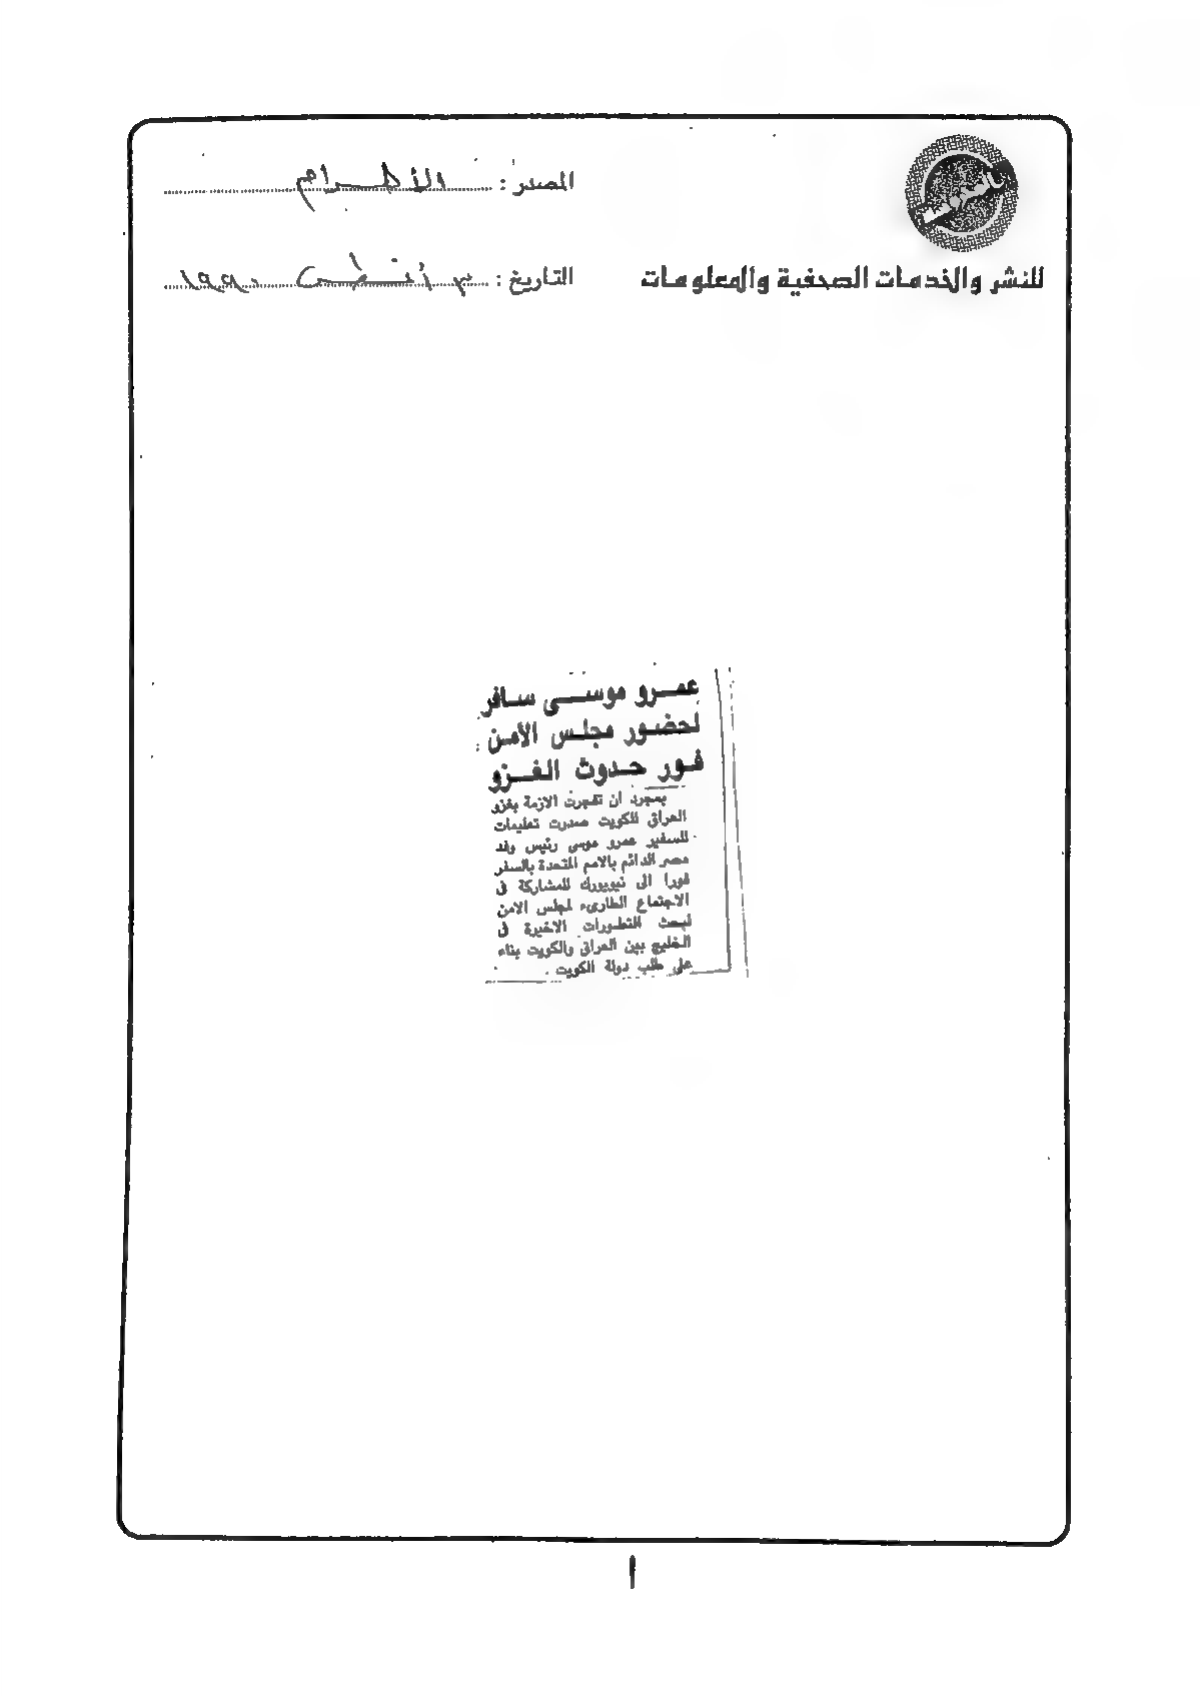 المصدر : الأهرام
للنشر والخدمات الصحفية والمعلومات
التاريخ : ٣ أغسطس ١٩٩٠
عمرو موسى سافر
لحضور مجلس الأمن
فور حدوث الغزو
بمجرد ان تفجرت الازمة بغزو
العراق للكويت صدرت تعليمات
للسفير عمرو موسى رئيس وفد
مصر الدائم بالامم المتحدة بالسفر
فورا الى نيويورك للمشاركة فى
الاجتماع الطارىء لمجلس الامن
لبحث التطورات الاخيرة فى
الخليج بين العراق والكويت بناء
على طلب دولة الكويت .
١